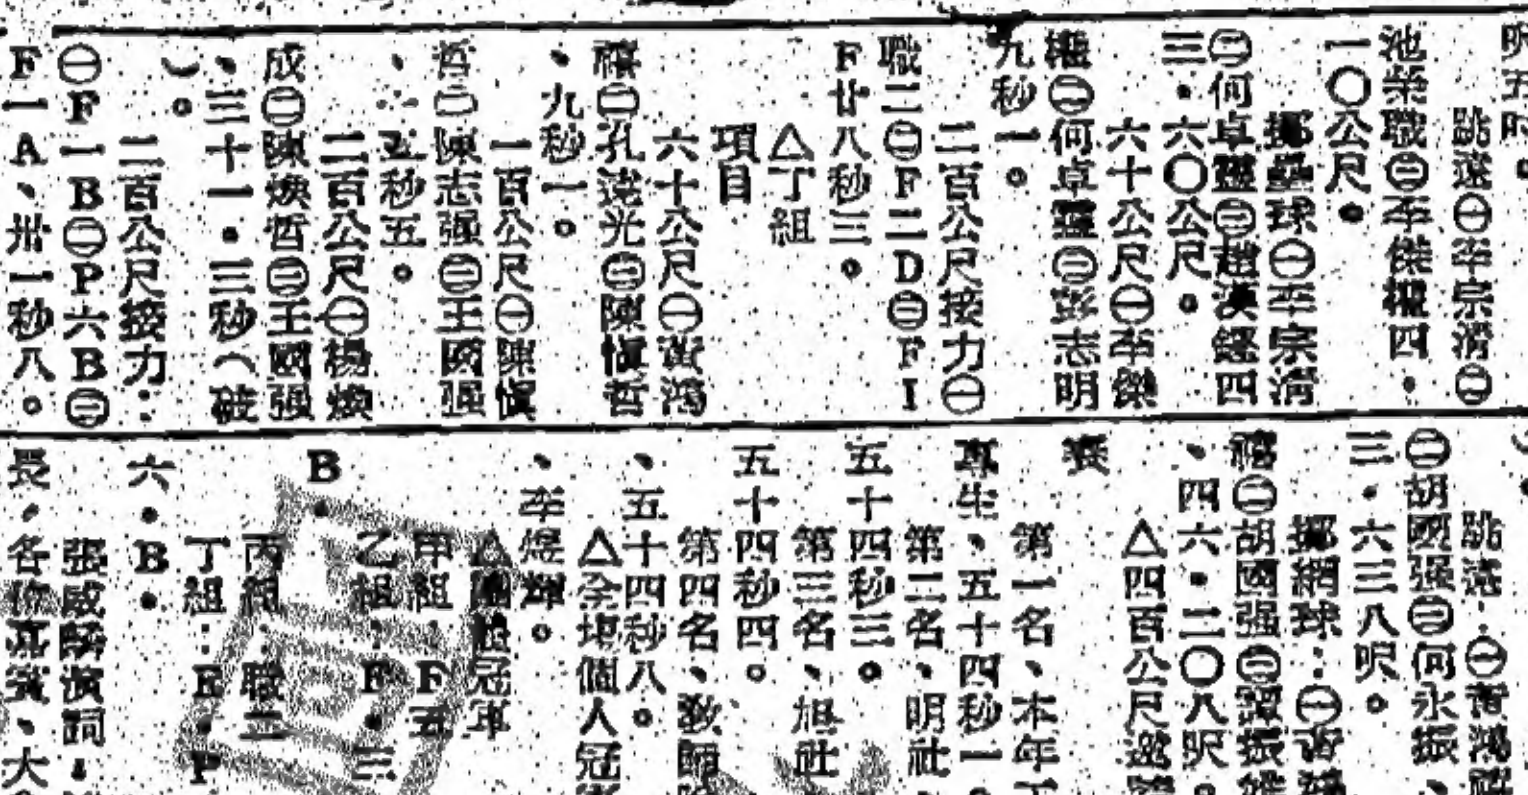 呎五吋。
跳遠㊀李宗湑㊁
池榮職㊂李傑權四．
一〇公尺。
擲壘球㊀李宗湑
㊁何卓靈㊂趙漢鏗四
三．六〇公尺。
六十公尺㊀李傑
權㊁何卓靈㊂彭志明
九秒一。
二百公尺接力㊀
職二㊁F二D㊂FI
F廿八秒三。
△丁組
項目
六十公尺㊀黃鴻
禧㊁孔達光㊂陳愼哲
、九秒一。
一百公尺㊀陳愼
哲㊁陳志强㊂王國强
五秒五。
二百公尺㊀楊煥
成㊁陳煥哲㊂王國强
、三十一．三秒（破
）。
二百公尺接力：
㊀F一B㊁P六B㊂
F一A、卅一秒八。
跳遠：㊀黃鴻
㊁胡國强㊂何永振、
三．六三八呎。
擲網球：㊀黃鴻
禧㊁胡國强㊂譚振
、四六．二〇八呎。
△四百公尺邀請
賽
第一名、本年
專生、五十四秒一。
第二名、明社
五十四秒三。
第三名、旭社
五十四秒四。
第四名、敎師
、五十四秒八。
△全塲個人冠
、李煜輝。
△團體冠軍
甲組：F五
B．
乙組：F．三
丙組：職二
丁組：E．P
六．B．
張威麟演詞
長，各位嘉賓、大